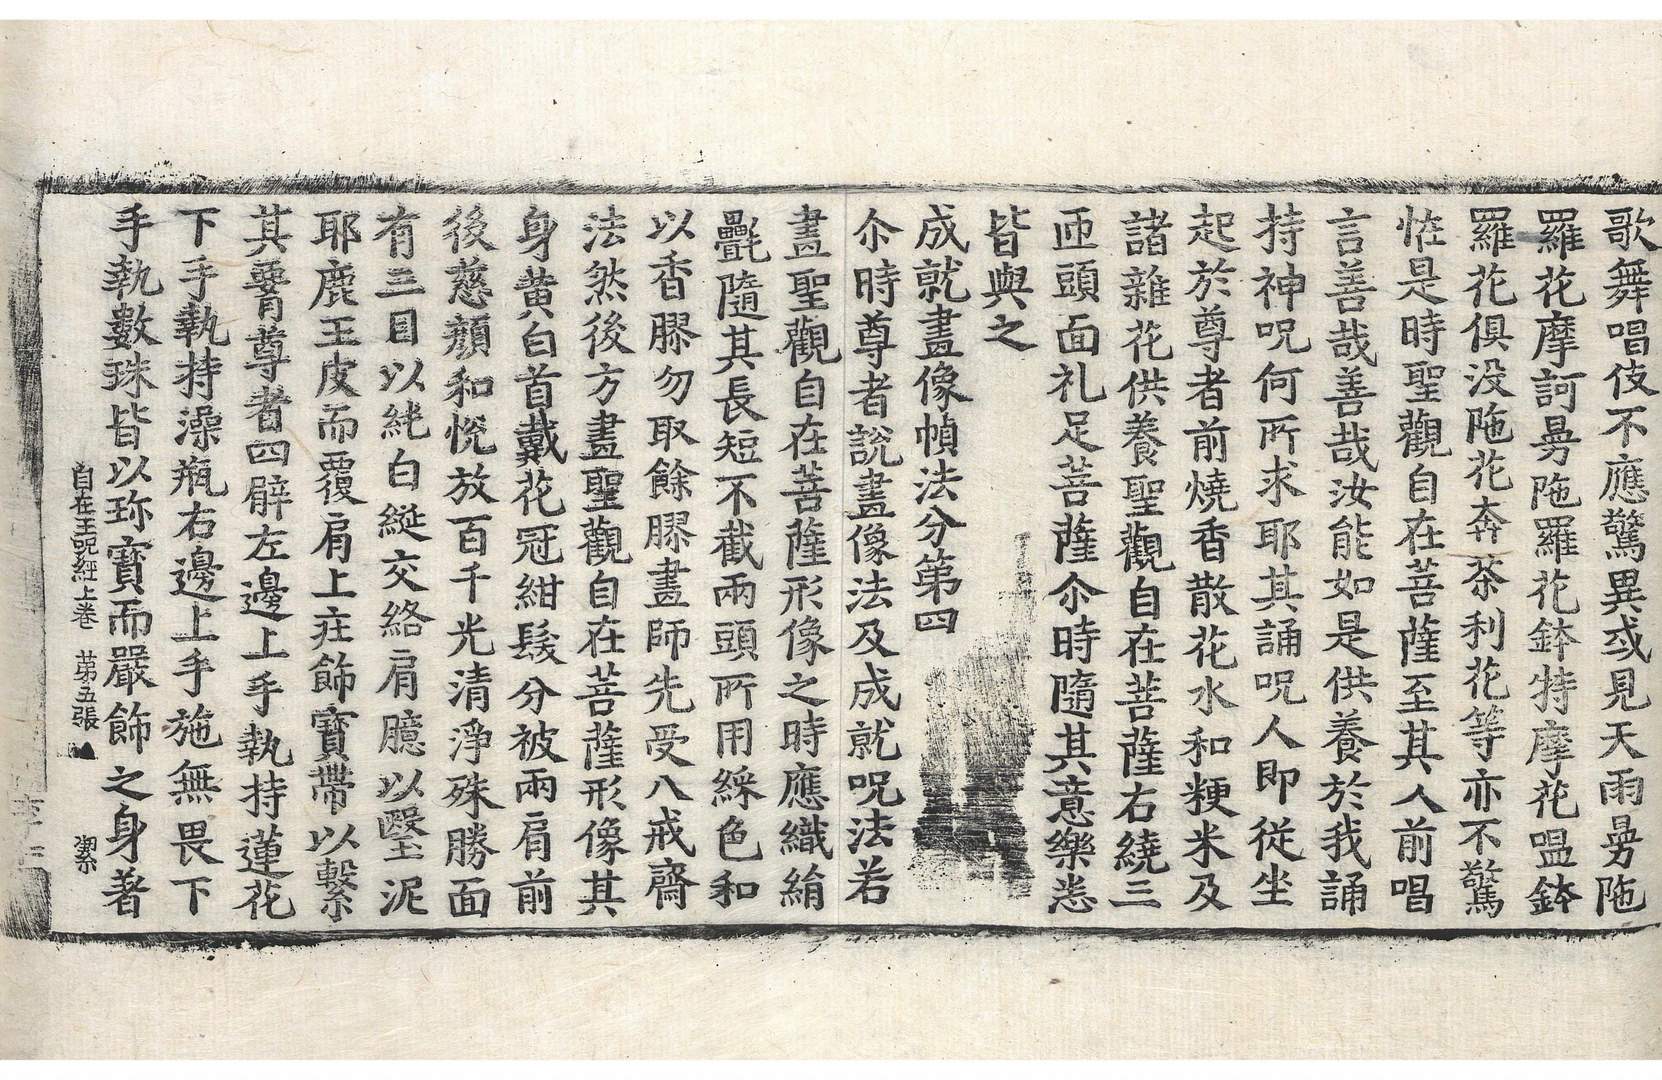 歌舞唱伎不應驚異或見天雨曼陁
羅花摩訶曼陁羅花鉢特摩花嗢鉢
羅花俱没陁花奔茶利花等亦不驚
恠是時聖觀自在菩薩至其人前唱
言善哉善哉汝能如是供養於我誦
持神呪何所求耶其誦呪人即從坐
起於尊者前燒香散花水和粳米及
諸雜花供養聖觀自在菩薩右繞三
匝頭面礼足菩薩尒時隨其意樂悉
皆與之
成就畫像幀法分第四
尒時尊者說畫像法及成就呪法若
畫聖觀自在菩薩形像之時應織絹
㲲隨其長短不截兩頭所用綵色和
以香膠勿取餘膠畫師先受八戒齋
法然後方畫聖觀自在菩薩形像其
身黄白首戴花冠紺髮分被兩肩前
後慈顔和恱放百千光清淨殊勝面
有三目以絁白綖交絡肩臆以瑿泥
耶鹿王皮而覆肩上庄飾寶帶以繫
其𦝫尊者四臂左邊上手執持蓮花
下手執持澡瓶右邊上手施無畏下
手執數珠皆以珎寶而嚴飾之身著
自在王呪經上卷 苐五張 潔